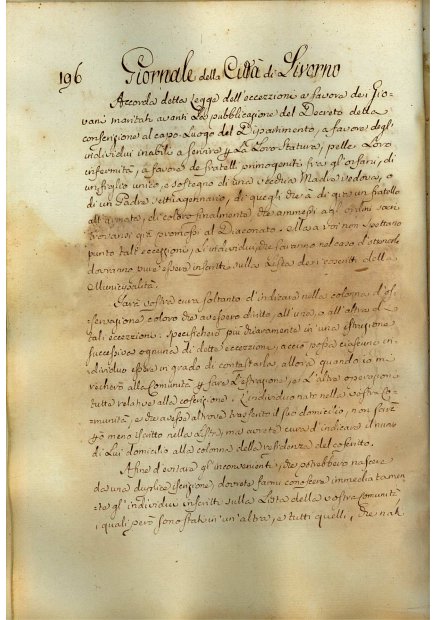 196 Giornale della Città di Livorno
Accorda detta Legge dell'eccezzioni a favora de Gio-
vani maritati avanti La pubblicazione del Decreto della
conscrizione al capo-Luogo del Dipartimento, a favore degl'
individui inabili a servire p La Loro statura, pelle Loro
infermità, a favore de fratelli primogeniti fra gl'orfani, di
un figlio unico, e sostegno di una vecchia Madre vedova, o
di un Padre settuagennario, di quegli che à di già un fratello
all'armata, di coloro finalmente che ammessi agl'ordini sacri
trovansi già promossi al Diaconato. Ma a voi non spettano
punto tali eccezzioni, gl'individui, che saranno nel caso d'ottenerle
dovranno pure essere inscritti sulla Lista dei coscritti della
Municipalità.
Sarà vostra cura soltanto d'indicare nella colonna d'os-
servazione coloro che avessero diritto, all'una, o all'altra di
tali eccezzioni. Specificherò più chiaramente in una istruzione
successiva ognuna di dette eccezzione, acciò possa ciascuno in-
dividuo essere in grado di contastarla, allora quando io mi
recherò alla Comunità p fare L'estrazione, e L'altre operazioni
tutte relative alla coscrizione. L'individuo nato nella vostra Co-
munità, e che avesse altrove trasferito il suo domicilio, non sarà
p meno iscritto nella Lista, ma avrete cura d'indicare il nuovo
di Lui domicilio alla colonna della residenza del coscritto.
Afine d'evitare gl'inconvenienti, che potrebbero nascere
da una duplice iscrizione, dovrete farmi conoscere immediatamen-
te gl'individui inscritti sulla Lista della vostra Comunità,
i quali però sono stati in un'altra, e tutti quelli, che nati